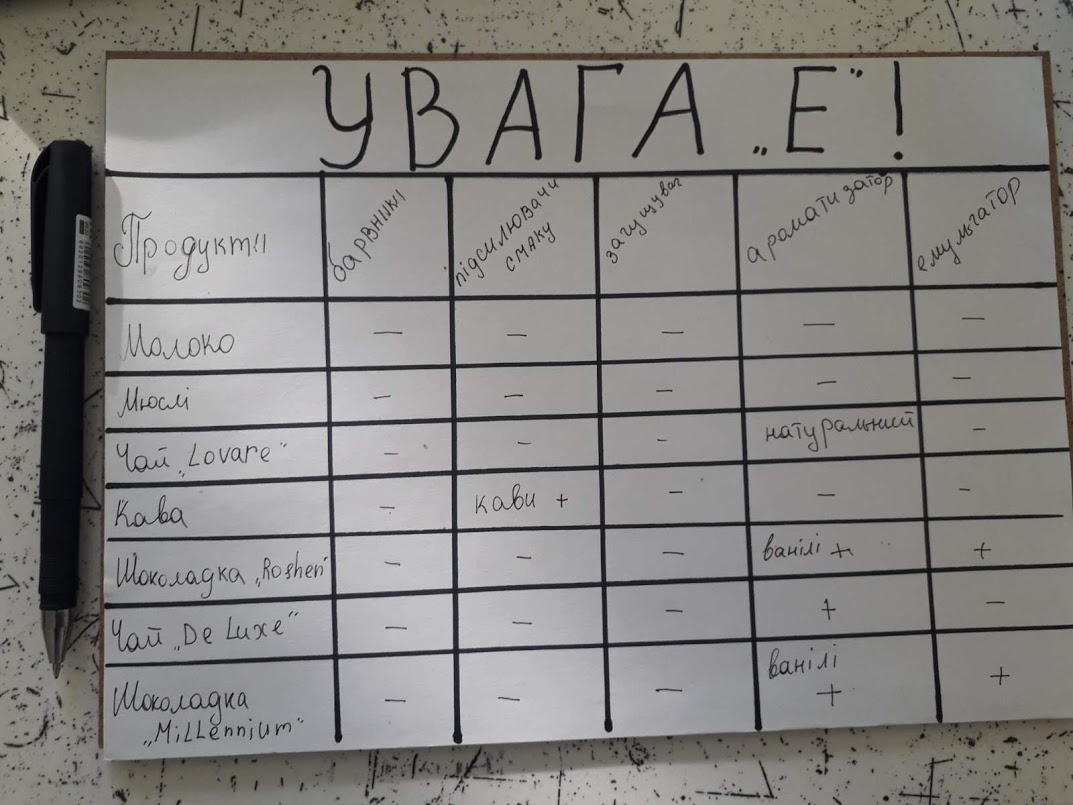 УВАГА „Е"!
Продукти барвники підсилювачи смаку загущувач ароматизатор емульгатор
Молоко — — — — —
Мюслі — — — — —
Чай „Lovare" — — — натуральний —
Кава — кави + — — —
Шоколадка „Roshen" — — — ванілі + +
Чай „De Luxe" — — — + —
Шоколадка — — — ванілі + +
„Millennium"